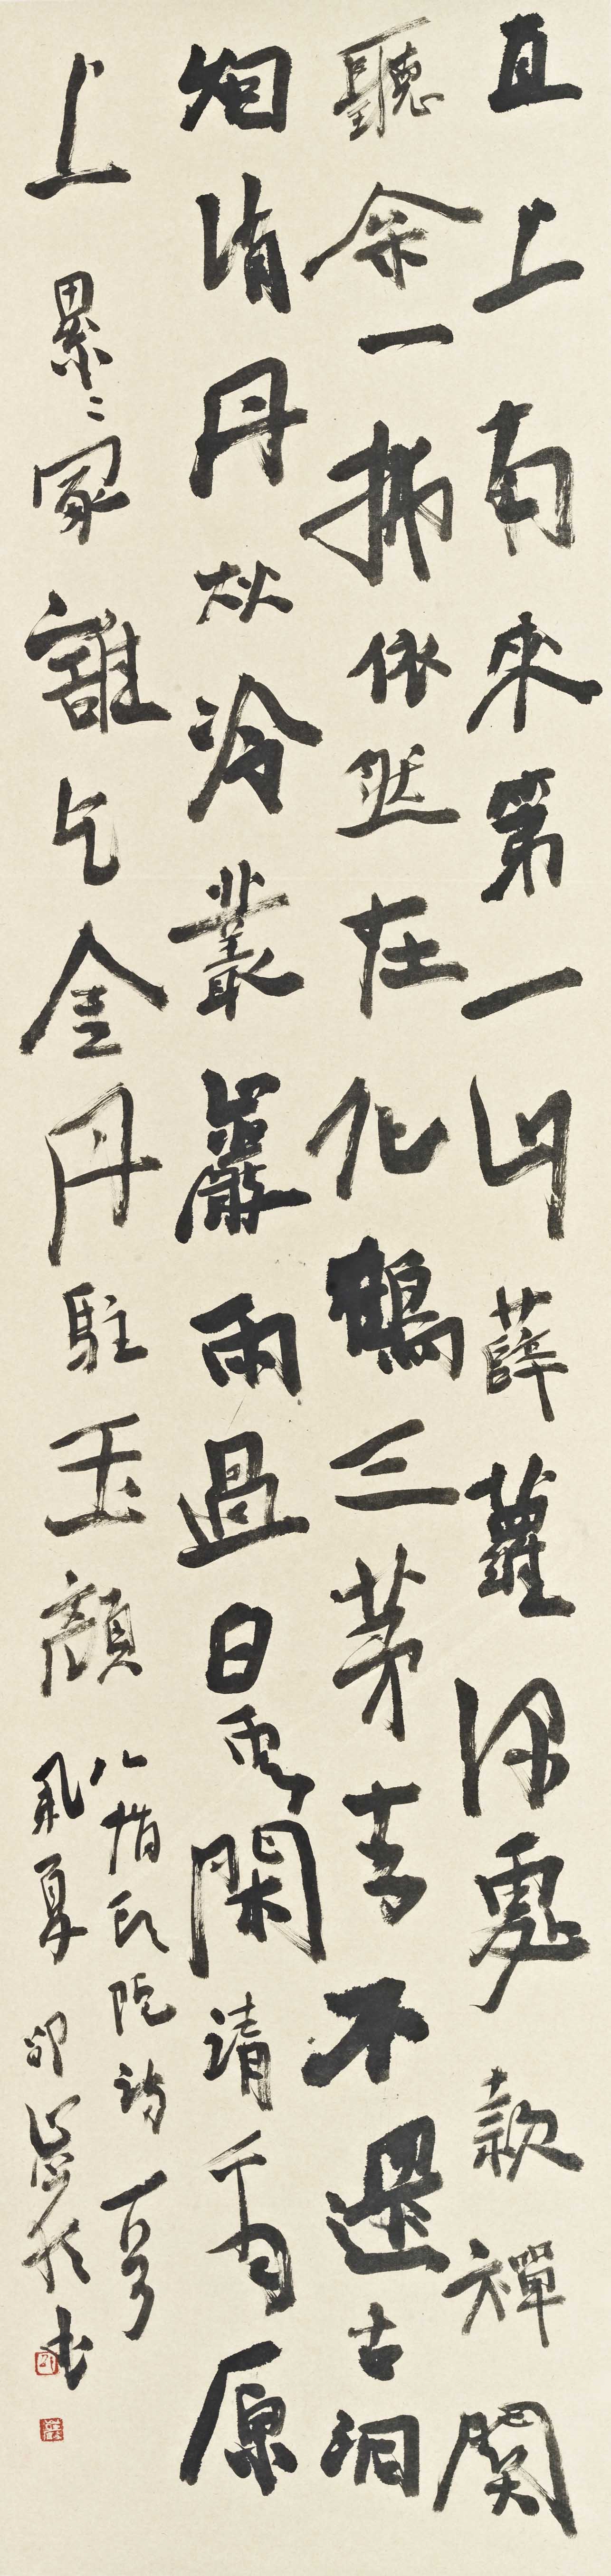 直上南来第一山薜蘿深處款禪關
聽余一拂依然在化鶴三茅去不還古洞
烟消丹灶冷叢巖雨過白雲閑請看原
上累〻冢誰乞金丹駐玉顏
八指頭陀詩一首
夏 书